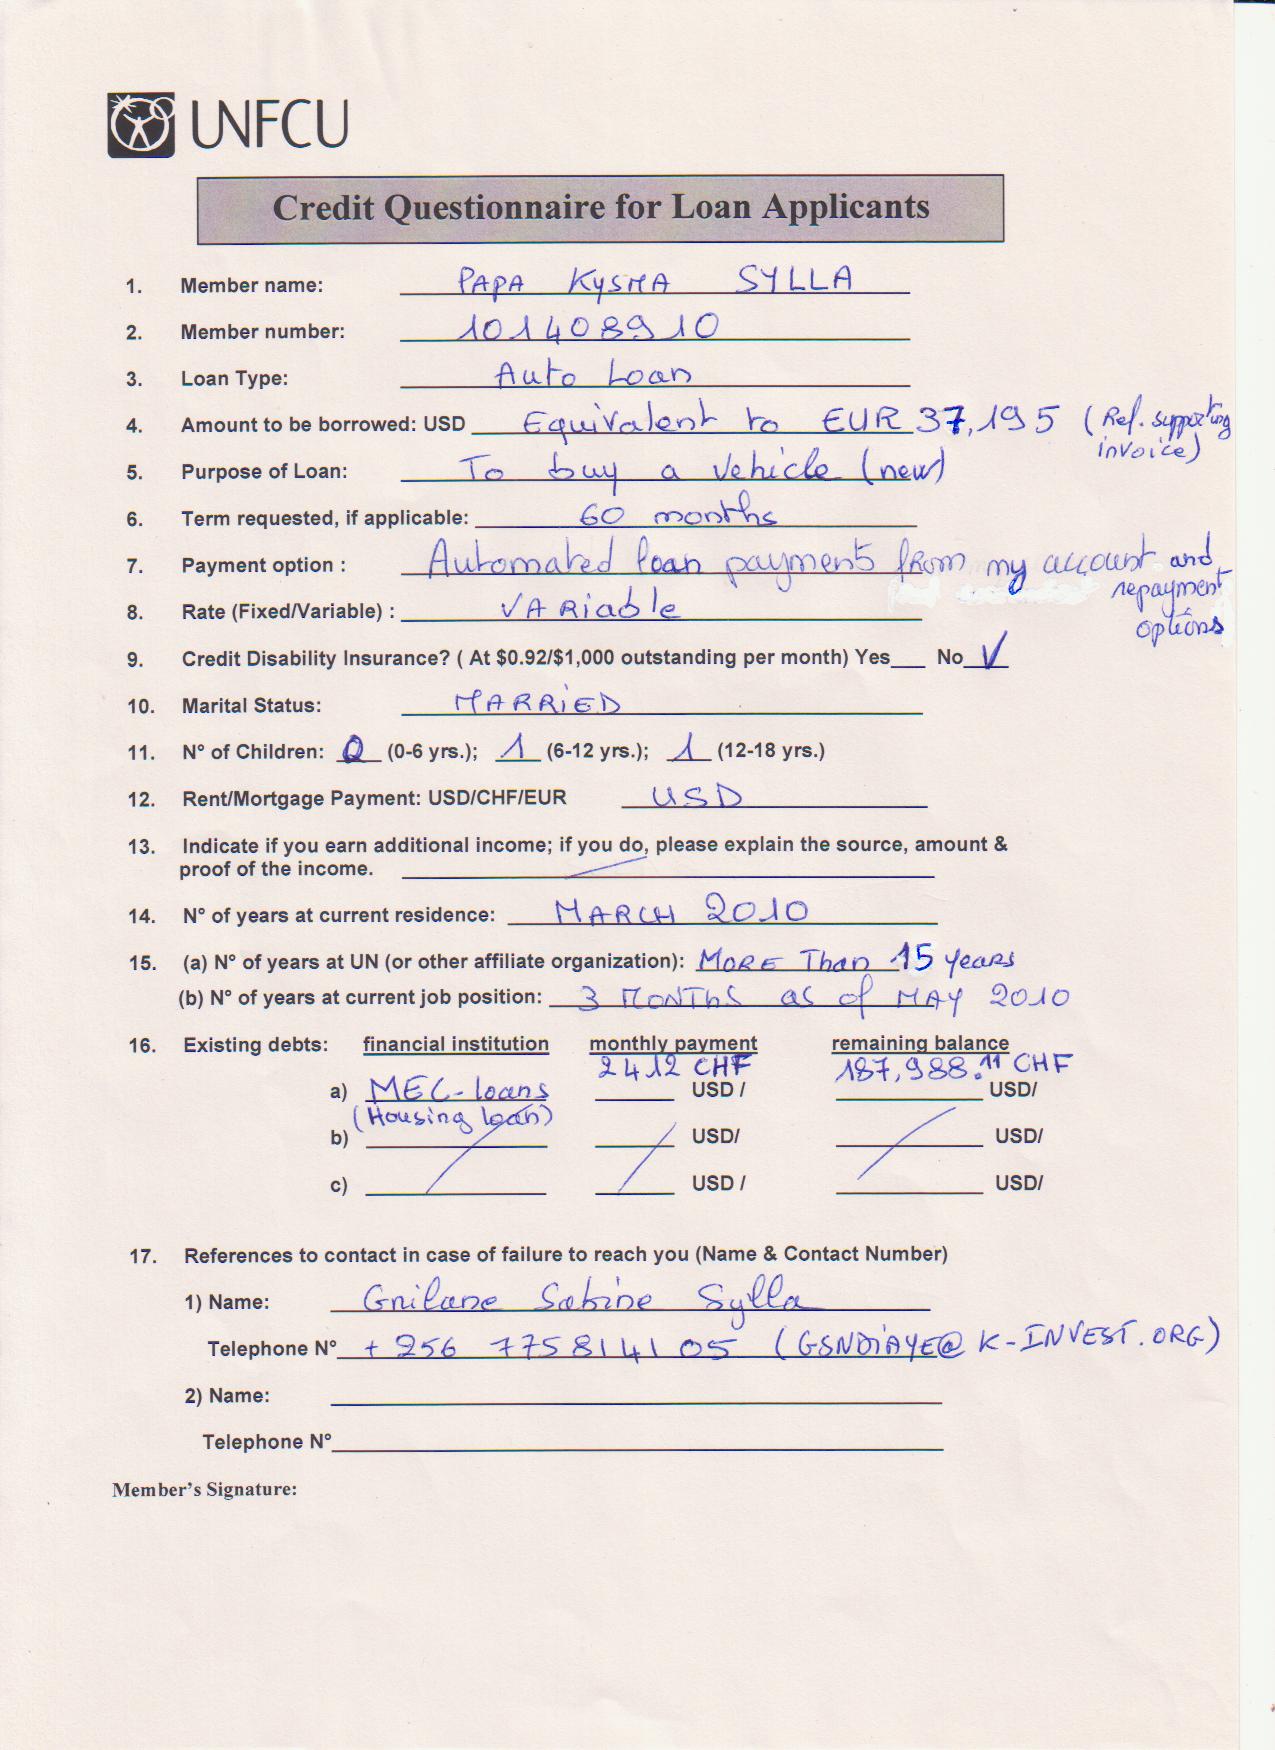 UNFCU
Credit Questionnaire for Loan Applicants
1. Member name: PAPA KYSMA SYLLA
2. Member number: 101408910
3. Loan Type: Auto Loan
4. Amount to be borrowed: USD Equivalent to EUR 37,195 (Ref. supporting
invoice)
5. Purpose of Loan: To buy a vehicle (new)
6. Term requested, if applicable: 60 months
7. Payment option : Automated loan payments from my account and
repayment
options
8. Rate (Fixed/Variable) : VARiable
9. Credit Disability Insurance? ( At $0.92/$1,000 outstanding per month) Yes___ No V
10. Marital Status: MARRiED
11. N° of Children: 0 (0-6 yrs.); 1 (6-12 yrs.); 1 (12-18 yrs.)
12. Rent/Mortgage Payment: USD/CHF/EUR USD
13. Indicate if you earn additional income; if you do, please explain the source, amount &
proof of the income.
14. N° of years at current residence: MARCH 2010
15. (a) N° of years at UN (or other affiliate organization): MORE Than 15 years
(b) N° of years at current job position: 3 MONThS as of MAY 2010
16. Existing debts: financial institution monthly payment remaining balance
2412 CHF 187,988.11 CHF
a) MEC-loans USD / USD/
(Housing loan)
b) USD/ USD/
c) USD / USD/
17. References to contact in case of failure to reach you (Name & Contact Number)
1) Name: Gnilane Sabine Sylla
Telephone N° + 256 775814105 (GSNDiAYE@K-INVEST.ORG)
2) Name:
Telephone N°
Member's Signature: